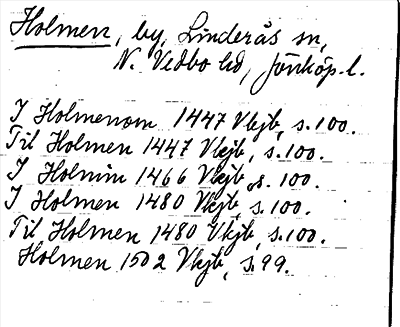 Holmen, by, Linderås sn,
N. Vedbo hd, Jönköp. l.
I Holmenom 1447 Vkjb, s. 100.
Til Holmen 1447 Vkjb, s. 100.
I Holmin 1466 Vkjb, s. 100.
I Holmen 1480 Vkjb, s. 100.
Til Holmen 1480 Vkjb, s. 100.
Holmen 1502 Vkjb, s. 99.